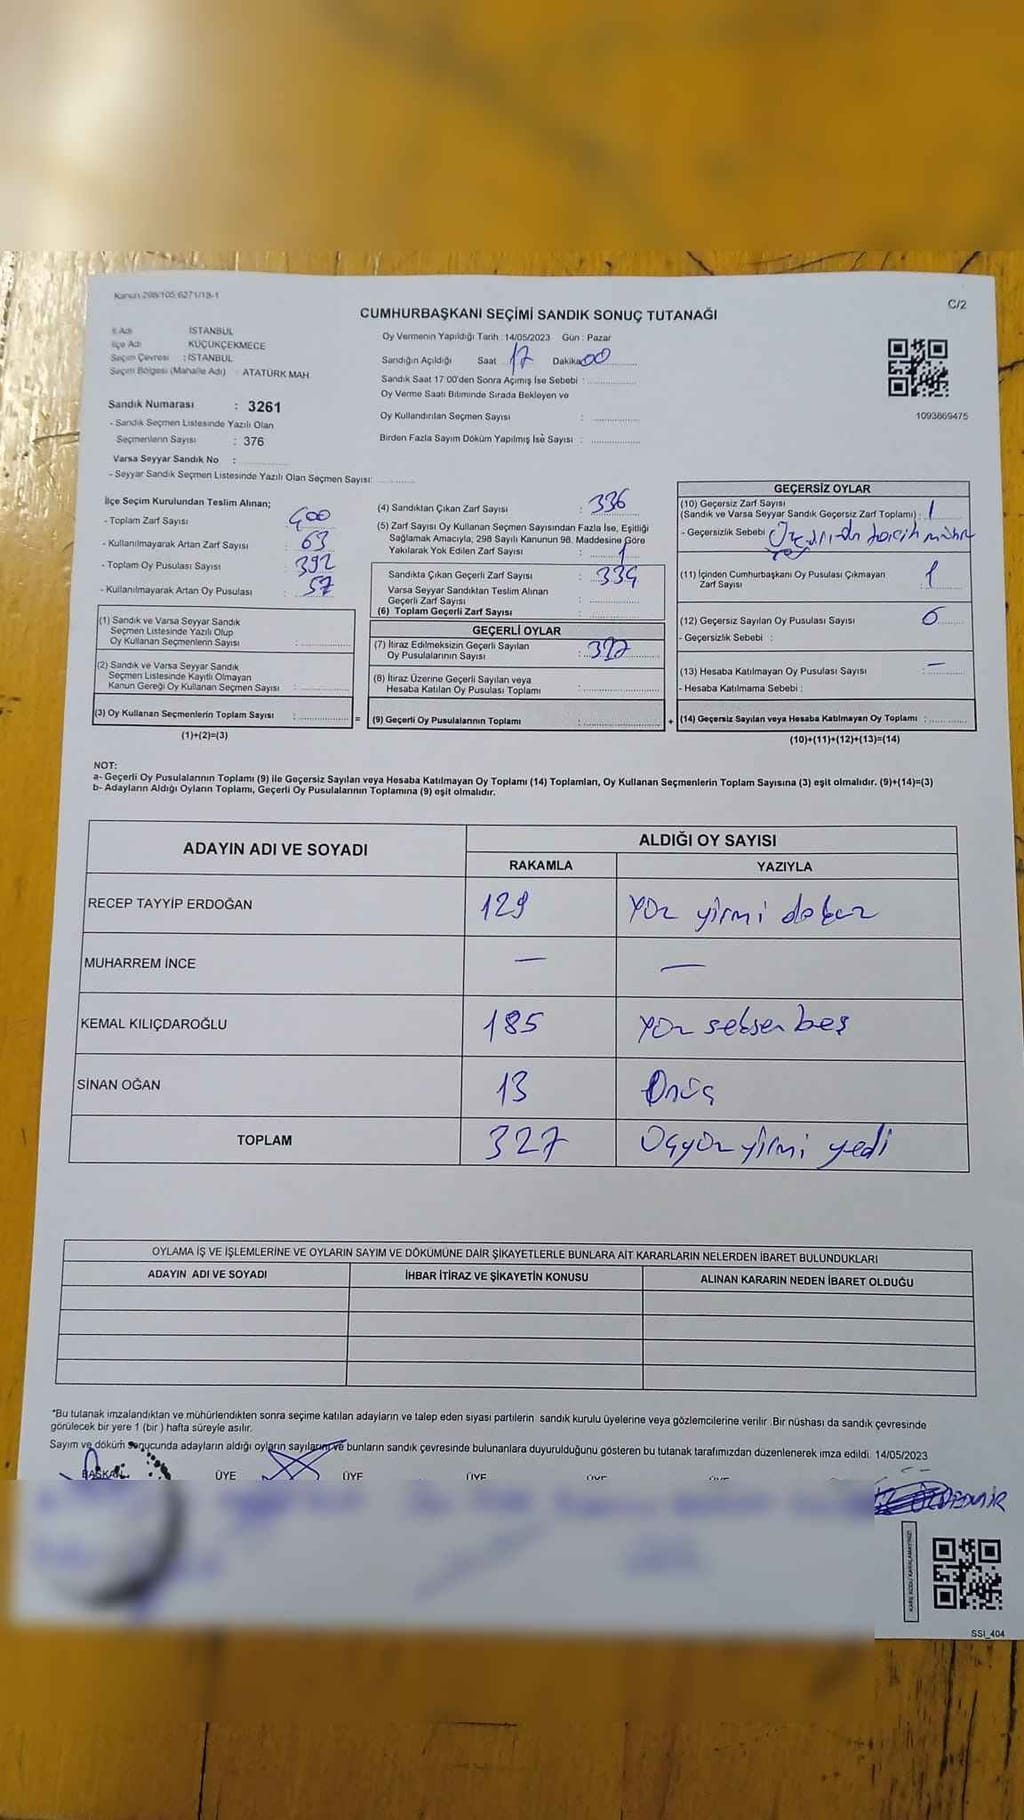 Kanun 298/105 6271/18-1
C/2
CUMHURBAŞKANI SEÇİMİ SANDIK SONUÇ TUTANAĞI
İl Adı İSTANBUL
İlçe Adı KÜÇÜKÇEKMECE
Seçim Çevresi : İSTANBUL
Seçim Bölgesi (Mahalle Adı) : ATATÜRK MAH.
Sandık Numarası : 3261
- Sandık Seçmen Listesinde Yazılı Olan
Seçmenlerin Sayısı : 376
Varsa Seyyar Sandık No :
- Seyyar Sandık Seçmen Listesinde Yazılı Olan Seçmen Sayısı:
Oy Vermenin Yapıldığı Tarih : 14/05/2023 Gün : Pazar
Sandığın Açıldığı Saat 17 Dakika 00
Sandık Saat 17:00'den Sonra Açılmış İse Sebebi :
Oy Verme Saati Bitiminde Sırada Bekleyen ve
Oy Kullandırılan Seçmen Sayısı :
Birden Fazla Sayım Döküm Yapılmış İse Sayısı :
1093869475
İlçe Seçim Kurulundan Teslim Alınan;
- Toplam Zarf Sayısı : 400
- Kullanılmayarak Artan Zarf Sayısı : 63
- Toplam Oy Pusulası Sayısı : 392
- Kullanılmayarak Artan Oy Pusulası : 57
(1) Sandık ve Varsa Seyyar Sandık
Seçmen Listesinde Yazılı Olup
Oy Kullanan Seçmenlerin Sayısı :
(2) Sandık ve Varsa Seyyar Sandık
Seçmen Listesinde Kayıtlı Olmayan
Kanun Gereği Oy Kullanan Seçmen Sayısı :
(3) Oy Kullanan Seçmenlerin Toplam Sayısı :
(1)+(2)=(3)
(4) Sandıktan Çıkan Zarf Sayısı : 336
(5) Zarf Sayısı Oy Kullanan Seçmen Sayısından Fazla İse, Eşitliği
Sağlamak Amacıyla, 298 Sayılı Kanunun 98. Maddesine Göre
Yakılarak Yok Edilen Zarf Sayısı : 1
Sandıkta Çıkan Geçerli Zarf Sayısı : 334
Varsa Seyyar Sandıktan Teslim Alınan
Geçerli Zarf Sayısı :
(6) Toplam Geçerli Zarf Sayısı :
GEÇERLİ OYLAR
(7) İtiraz Edilmeksizin Geçerli Sayılan
Oy Pusulalarının Sayısı : 327
(8) İtiraz Üzerine Geçerli Sayılan veya
Hesaba Katılan Oy Pusulası Toplamı :
= (9) Geçerli Oy Pusulalarının Toplamı :
GEÇERSİZ OYLAR
(10) Geçersiz Zarf Sayısı
(Sandık ve Varsa Seyyar Sandık Geçersiz Zarf Toplamı) : 1
- Geçersizlik Sebebi : Üzerinde tercih mührü
(11) İçinden Cumhurbaşkanı Oy Pusulası Çıkmayan
Zarf Sayısı : 1
(12) Geçersiz Sayılan Oy Pusulası Sayısı : 6
- Geçersizlik Sebebi :
(13) Hesaba Katılmayan Oy Pusulası Sayısı : —
- Hesaba Katılmama Sebebi :
+ (14) Geçersiz Sayılan veya Hesaba Katılmayan Oy Toplamı :
(10)+(11)+(12)+(13)=(14)
NOT:
a- Geçerli Oy Pusulalarının Toplamı (9) ile Geçersiz Sayılan veya Hesaba Katılmayan Oy Toplamı (14) Toplamları, Oy Kullanan Seçmenlerin Toplam Sayısına (3) eşit olmalıdır. (9)+(14)=(3)
b- Adayların Aldığı Oyların Toplamı, Geçerli Oy Pusulalarının Toplamına (9) eşit olmalıdır.
ADAYIN ADI VE SOYADI
ALDIĞI OY SAYISI
RAKAMLA YAZIYLA
RECEP TAYYİP ERDOĞAN 129 Yüz yirmi dokuz
MUHARREM İNCE — —
KEMAL KILIÇDAROĞLU 185 Yüz seksen beş
SİNAN OĞAN 13 Onüç
TOPLAM 327 Üçyüz yirmi yedi
OYLAMA İŞ VE İŞLEMLERİNE VE OYLARIN SAYIM VE DÖKÜMÜNE DAİR ŞİKAYETLERLE BUNLARA AİT KARARLARIN NELERDEN İBARET BULUNDUKLARI
ADAYIN ADI VE SOYADI İHBAR İTİRAZ VE ŞİKAYETİN KONUSU ALINAN KARARIN NEDEN İBARET OLDUĞU
*Bu tutanak imzalandıktan ve mühürlendikten sonra seçime katılan adayların ve talep eden siyasi partilerin sandık kurulu üyelerine veya gözlemcilerine verilir. Bir nüshası da sandık çevresinde
görülecek bir yere 1 (bir) hafta süreyle asılır.
Sayım ve döküm sonucunda adayların aldığı oyların sayılarını ve bunların sandık çevresinde bulunanlara duyurulduğunu gösteren bu tutanak tarafımızdan düzenlenerek imza edildi. 14/05/2023
BAŞKAN ÜYE ÜYE ÜYE ÜYE ÜYE
ÖZDEMİR
SSI_404